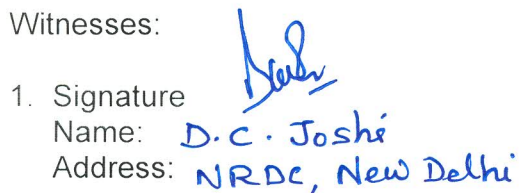 Witnesses:
1. Signature
Name: D.C. Joshi
Address: NRDC, New Delhi